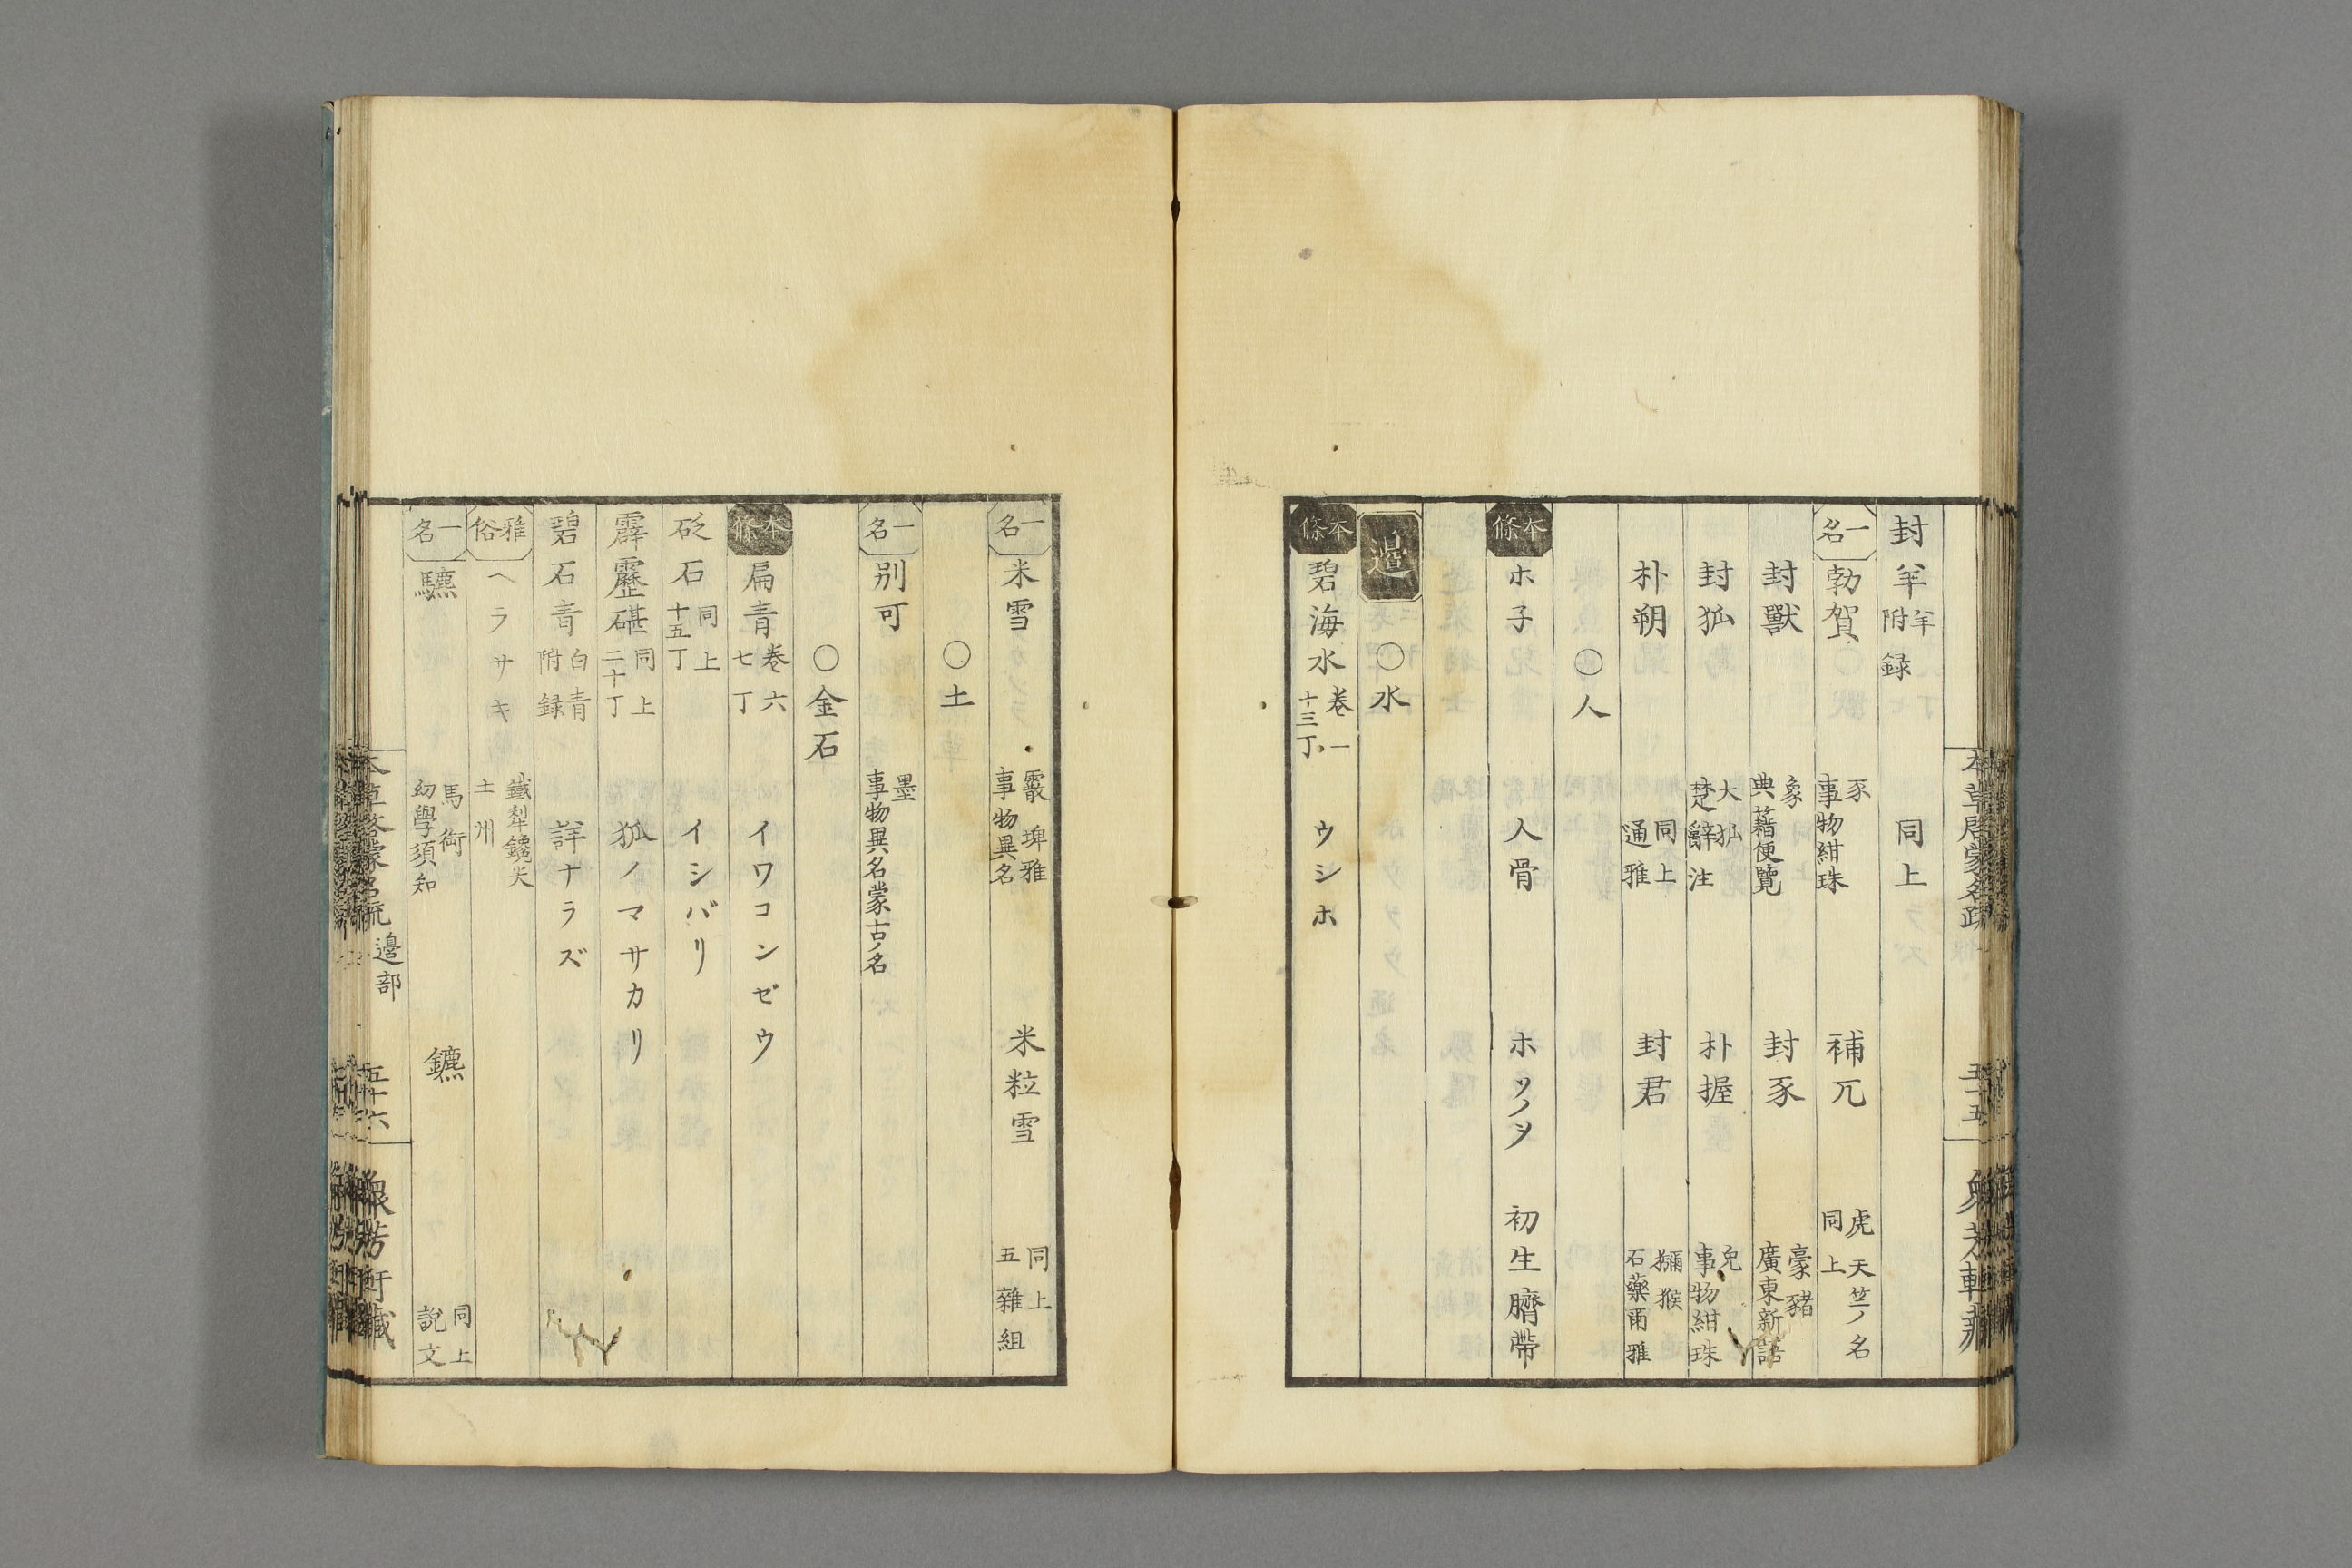 封羊 羊附録 同上
一名 勃賀 豕 事物紺珠 補兀 虎 天竺ノ名 同上
封獸 象 典籍便覽 封豕 豪豬 廣東新語
封狐 大狐 楚辭注 朴握 兔 事物紺珠
朴朔 同上 通雅 封君 獼猴 石藥爾雅
〇人
本條 ホ子 人骨 ホソノヲ 初生臍帶
邉 〇水
本條 碧海水 卷一 十三丁 ウシホ
本草啓蒙名疏 五十五
一名 米雪 霰 埤雅 事物異名 米粒雪 同上 五雜組
〇土
一名 別可 墨 事物異名蒙古ノ名
〇金石
本條 扁青 卷六 七丁 イワコンゼウ
砭石 同上 十五丁 イシバリ
霹靂碪 同上 二十丁 狐ノマサカリ
碧石青 白青附録 詳ナラズ
雅俗 ヘラサキ 鐵犁鑱尖 土州
一名 驃 馬銜 幼學須知 鑣 同上 說文
本草啓蒙名疏 邉部 五十六 衆芳軒藏